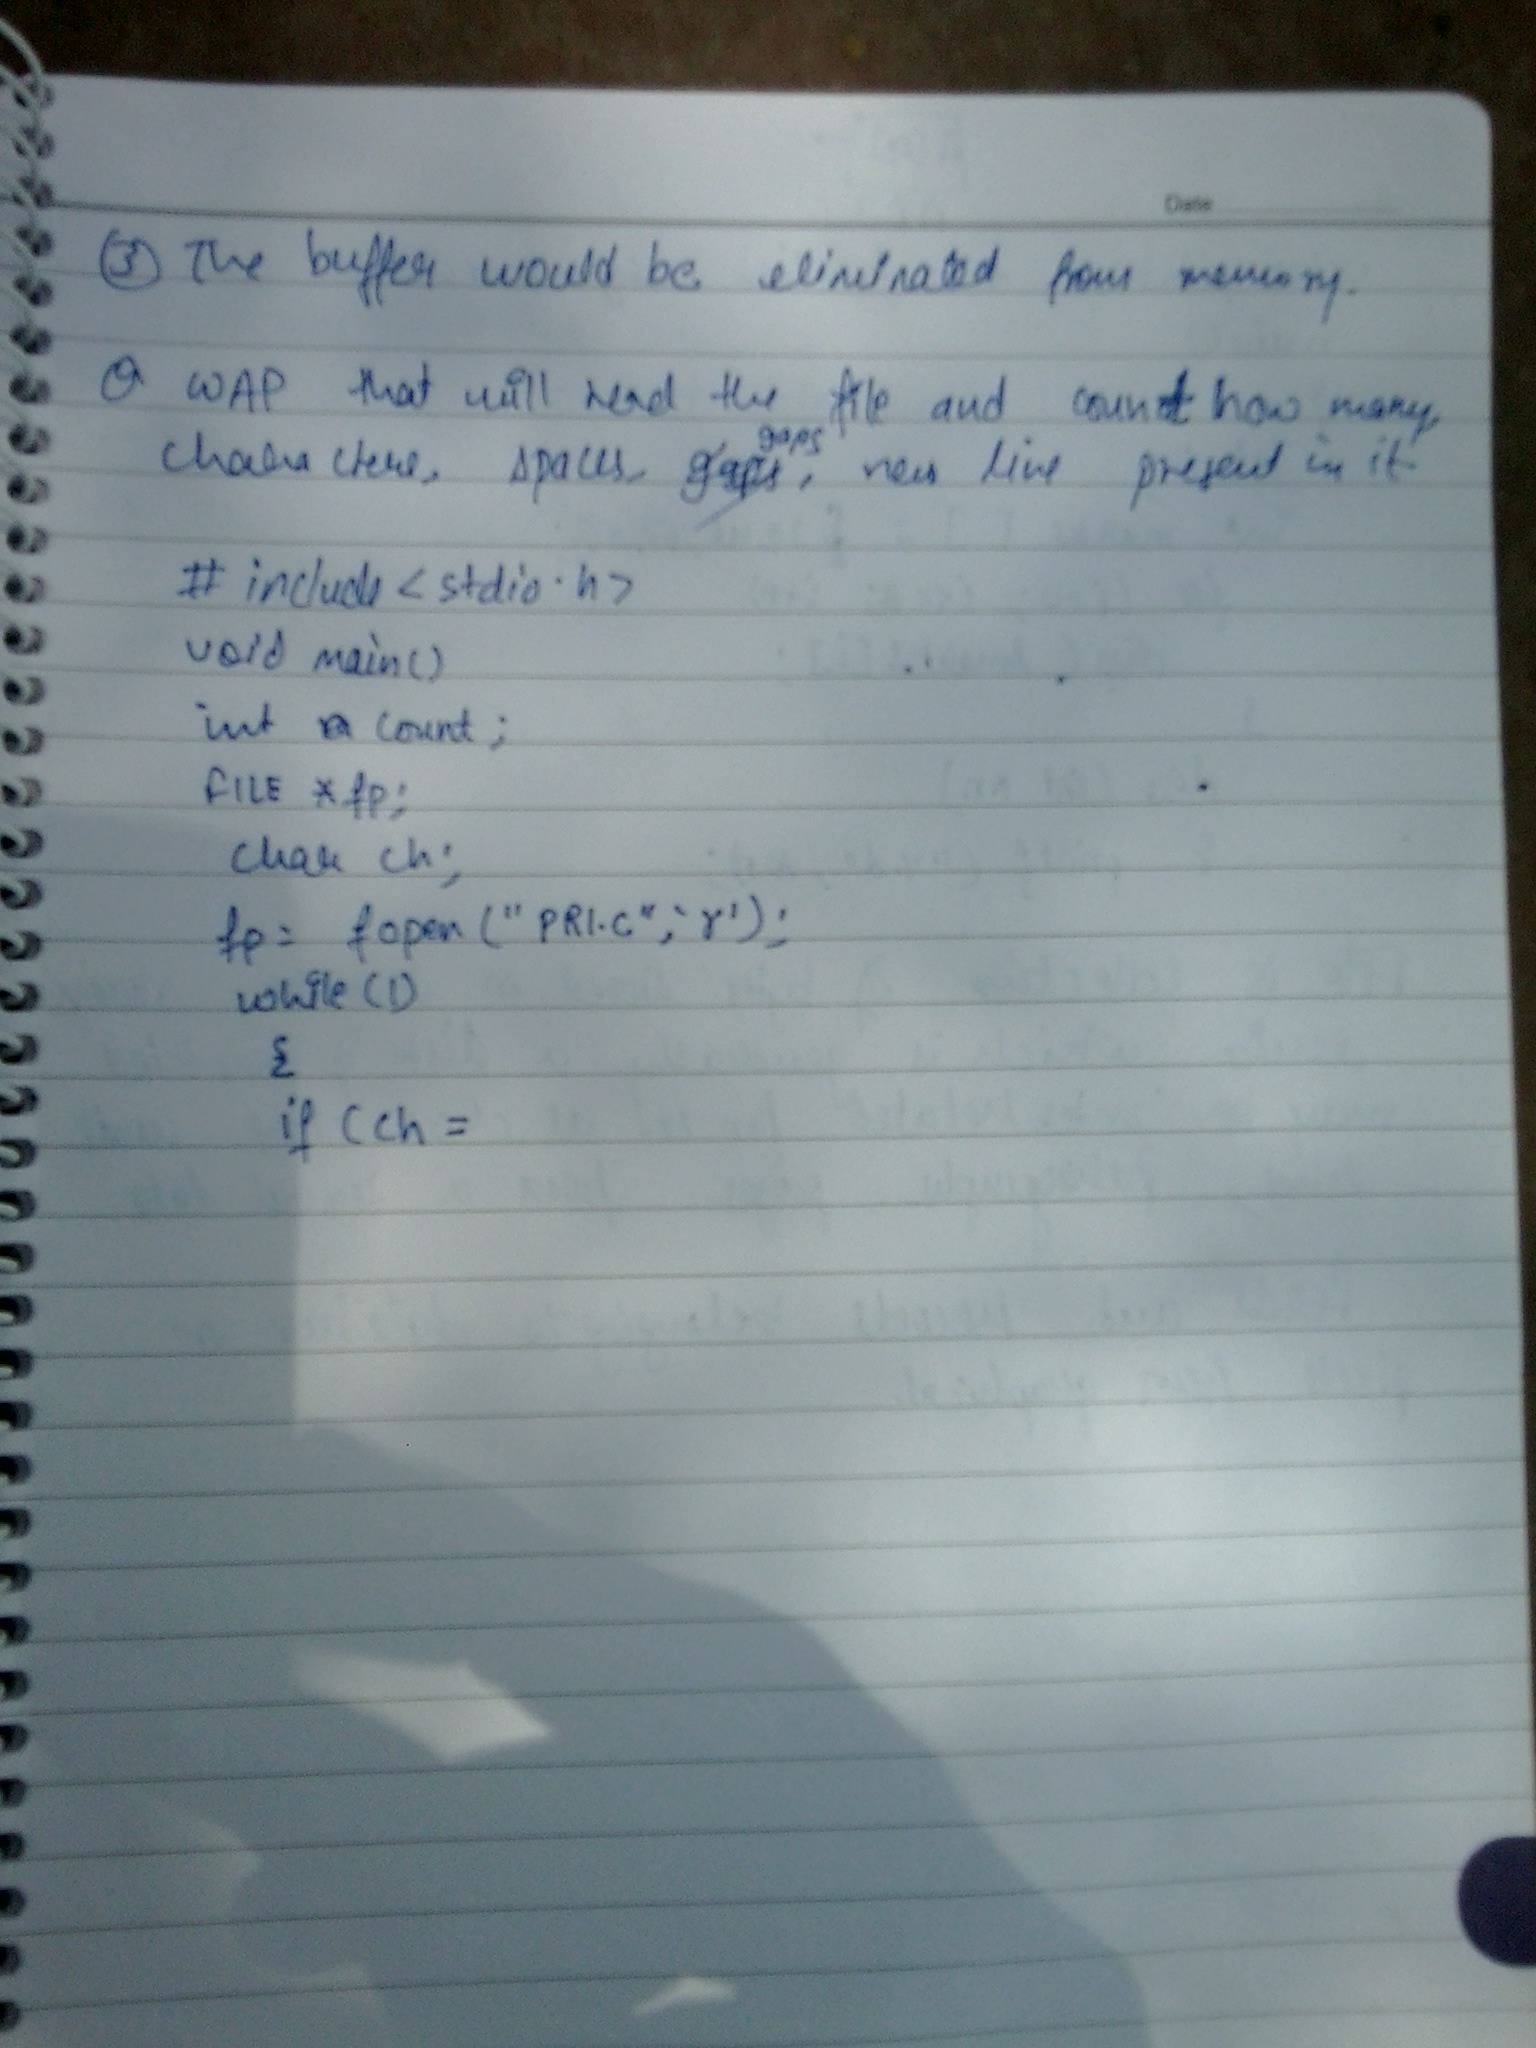 Date
③ The buffer would be eliminated from memory.
Q WAP that will read the file and count how many
gaps
characters, spaces, gaps, new line present in it
# include <stdio.h>
void main()
int count;
FILE *fp;
char ch;
fp = fopen ("PR1.C", 'r');
while (1)
{
if (ch =